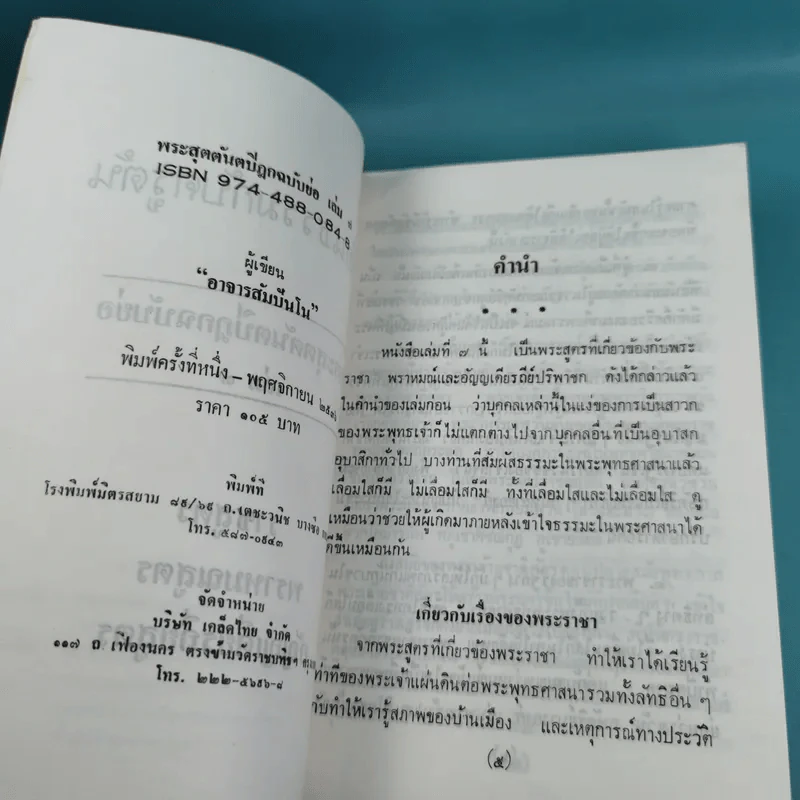 พระสุตตันตปิฎกฉบับย่อ เล่ม ๗
ISBN 974-488-084-8
ผู้เขียน
“อาจารสัมปันโน”
พิมพ์ครั้งที่หนึ่ง – พฤศจิกายน
ราคา ๑๐๕ บาท
พิมพ์ที่
โรงพิมพ์มิตรสยาม ๘๙/๖๙ ถ.เตชะวนิช บางซื่อ
โทร. ๕๘๗-๐๙๔๓
จัดจำหน่าย
บริษัท เคล็ดไทย จำกัด
๑๑๗ ถ. เฟื่องนคร ตรงข้ามวัดราชบพิธฯ
โทร. ๒๒๒-๕๖๙๖-๘
คำนำ
• • •
หนังสือเล่มที่ ๗ นี้ เป็นพระสูตรที่เกี่ยวข้องกับพระ
ราชา พราหมณ์และอัญญเดียรถีย์ปริพาชก ดังได้กล่าวแล้ว
ในคำนำของเล่มก่อน ว่าบุคคลเหล่านี้ในแง่ของการเป็นสาวก
ของพระพุทธเจ้าก็ไม่แตกต่างไปจากบุคคลอื่นที่เป็นอุบาสก
อุบาสิกาทั่วไป บางท่านที่สัมผัสธรรมะในพระพุทธศาสนาแล้ว
เลื่อมใสก็มี ไม่เลื่อมใสก็มี ทั้งที่เลื่อมใสและไม่เลื่อมใส ดู
เหมือนว่าช่วยให้ผู้เกิดมาภายหลังเข้าใจธรรมะในพระศาสนาได้
ดีขึ้นเหมือนกัน
เกี่ยวกับเรื่องของพระราชา
จากพระสูตรที่เกี่ยวข้องพระราชา ทำให้เราได้เรียนรู้
ท่าทีของพระเจ้าแผ่นดินต่อพระพุทธศาสนารวมทั้งลัทธิอื่น ๆ
ทำให้เรารู้สภาพของบ้านเมือง และเหตุการณ์ทางประวัติ
(๕)